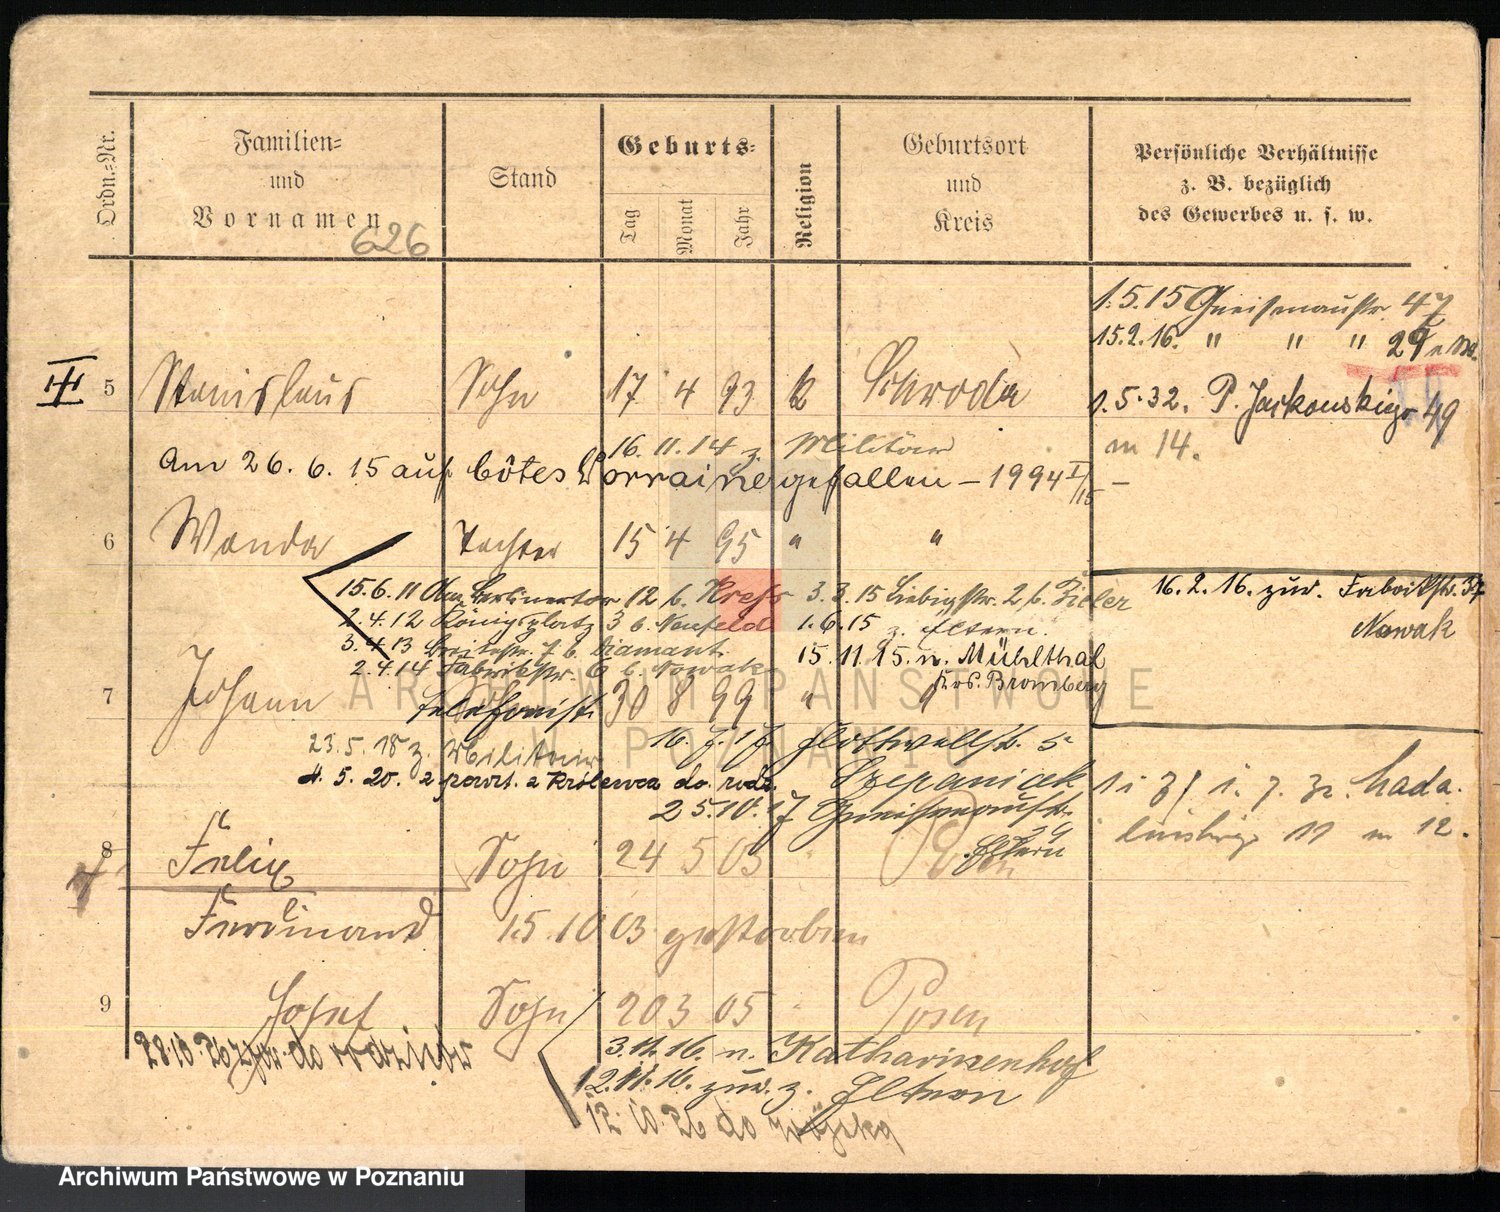 Ordn.=Nr.
Familien=
und
Vornamen
626
Stand
Geburts=
Tag
Monat
Jahr
Religion
Geburtsort
und
Kreis
Persönliche Verhältnisse
z. B. bezüglich
des Gewerbes u. s. w.
1.5.15 Gneisenaustr. 47
15.2.16. " " " 29
5 Stanislaus Sohn 17 4 93 k Schroda
1.5.32. P. Jackowskiego 49
m 14.
16.11.14 z. Militär
Am 26.6.15 auf Côtes Lorraine gefallen – 1994 I/15 –
6 Wanda Tochter 15 4 95 " "
15.6.11 Am Berlinertor 12 b. Kress 3.3.15 Liebigstr. 2 b.
16.2.16. zur. Fabrikstr. 37
Nowak
2.4.12 Königsplatz 3 b. Neufeld 1.6.15 z. Eltern.
3.4.13 Breitestr. 7 b. Diamant.
2.4.14 Fabrikstr. 6 b. Nowak
15.11.15. n. Mühlthal
Krs. Bromberg
7 Johann Telefonist. 30 8 99 " "
23.5.18 z. Militair
16.7.17 Flottwellstr. 5
Szczepaniak
4.5.20. z powrt. z Królewca do rodz.
25.10.17 Gneisenaustr.
29
Eltern
11 m 12.
8 Felix Sohn 24 5 03 Posen
Ferdinand 15.10 03 gestorben
9 Josef Sohn 20 3 05 " Posen
28.10.26 do rodziców
3.11.16. n. Katharinenhof
12.11.16. zur. z. Eltern
12.10.26 do wojska
ARCHIWUM PAŃSTWOWE
W POZNANIU
Archiwum Państwowe w Poznaniu